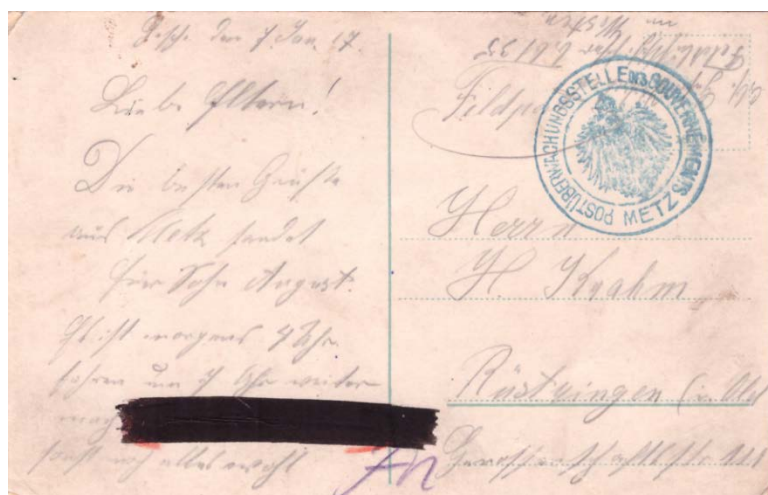 d. 7. Jan. 17.
Liebe Eltern!
Die besten Grüße
aus Metz sendet
Euer Sohn August.
Es ist morgens 4 Uhr
fahren um 7 Uhr weiter
sonst noch alles wohl
Feldpost
POSTÜBERWACHUNGSSTELLE DES GOUVERNEMENTS METZ
Herrn
H. Krahm
Rüstringen (i. Old
Genossenschaftsstr